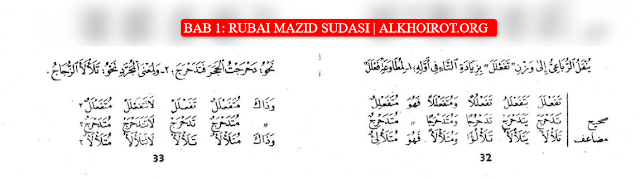 BAB 1: RUBAI MAZID SUDASI | ALKHOIROT.ORG
يُنْقَلُ الرُّبَاعِيُّ اِلَى وَزْنِ "تَفَعْلَلَ" بِزِيَادَةِ التَّاءِ فِى اَوَّلِهِ: ١- لِمُطَاوَعَةِ فَعْلَلَ"
تَفَعْلَلَ يَتَفَعْلَلُ تَفَعْلُلًا وَمُتَفَعْلَلًا فَهُوَ مُتَفَعْلِلٌ
صحيح تَدَحْرَجَ يَتَدَحْرَجُ تَدَحْرُجًا وَمُتَدَحْرَجًا " مُتَدَحْرِجٌ
مضاعف تَلَأْلَأَ يَتَلَأْلَأُ تَلَأْلُؤًا وَمُتَلَأْلَأً فَهُوَ مُتَلَأْلِئٌ
32
نَحْوُ: دَحْرَجْتُ الْحَجَرَ فَتَدَحْرَجَ، ٢- وَلِمَعْنَى الْمُجَرَّدِ نَحْوُ: تَلَأْلَأَ الزُّجَاجُ.
وَذَاكَ مُتَفَعْلَلٌ تَفَعْلَلْ لَاتَتَفَعْلَلْ مُتَفَعْلَلٌ ٢
" مُتَدَحْرَجٌ تَدَحْرَجْ لَاتَتَدَحْرَجْ مُتَدَحْرَجٌ ٢
وَذَاكَ مُتَلَأْلَأٌ تَلَأْلَأْ لَاتَتَلَأْلَأْ مُتَلَأْلَأٌ ٢
33